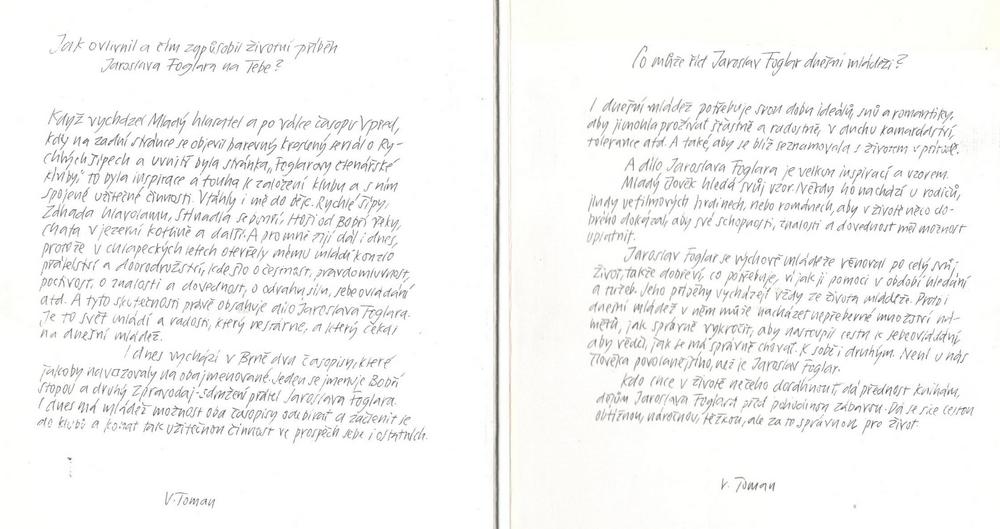 Jak ovlivnil a čím zapůsobil životní příběh
Jaroslava Foglara na Tebe?
Když vycházel Mladý hlasatel a po válce časopis Vpřed,
kdy na zadní stránce se objevil barevný kreslený seriál o Ry-
chlých šípech a uvnitř byla stránka „Foglarovy čtenářské
kluby." to byla inspirace a touha k založení klubu a s ním
spojené užitečné činnosti. Vtáhly i mě do děje. Rychlé šípy,
Záhada hlavolamu, Stínadla se bouří, Hoši od Bobří řeky,
Chata v jezerní kotlině a další. A pro mně žijí dál i dnes,
protože v chlapeckých letech otevřely mému mládí kouzlo
přátelství a dobrodružství, kde šlo o čestnost, pravdomluvnost,
poctivost, o znalosti a dovednost, o odvahu, sílu, sebeovládání
atd. A tyto skutečnosti právě obsahuje dílo Jaroslava Foglara.
Je to svět mládí a radosti, který nestárne, a který čeká i
na dnešní mládež.
I dnes vychází v Brně dva časopisy, které
jakoby navazovaly na oba jmenované. Jeden se jmenuje Bobří
stopou a druhý Zpravodaj - sdružení přátel Jaroslava Foglara.
I dnes má mládež možnost oba časopisy odebírat a začlenit se
do klubů a konat tak užitečnou činnost ve prospěch sebe i ostatních.
V. Toman
Co může říct Jaroslav Foglar dnešní mládeži?
I dnešní mládež potřebuje svou dobu ideálů, snů a romantiky,
aby ji mohla prožívat šťastně a radostně, v duchu kamarádství,
tolerance atd. A také, aby se blíž seznamovala s životem v přírodě.
A dílo Jaroslava Foglara je velkou inspirací a vzorem.
Mladý člověk hledá svůj vzor. Někdy ho nachází u rodičů,
jindy ve filmových hrdinech, nebo románech, aby v životě něco do-
brého dokázal, aby své schopnosti, znalosti a dovednost měl možnost
uplatnit.
Jaroslav Foglar se výchově mládeže věnoval po celý svůj
život, takže dobře ví, co potřebuje, ví jak jí pomoci v období hledání
a tužeb. Jeho příběhy vycházejí vždy ze života mládeže. Proto i
dnešní mládež v něm může nacházet nepřeberné množství ná-
mětů, jak správně vykročit, aby nastoupil cestu k sebeovládání,
aby věděl, jak se má správně chovat. K sobě i druhým. Není u nás
člověka povolanějšího, než je Jaroslav Foglar.
Kdo chce v životě něčeho dosáhnout, dá přednost knihám,
dějům Jaroslava Foglara před pohodlnou zábavou. Dá se sice cestou
obtížnou, náročnou, těžkou, ale za to správnou pro život.
V. Toman